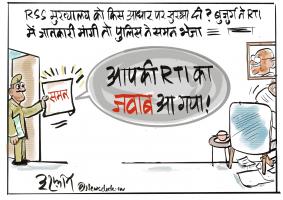 RSS मुख्यालय को किस आधार पर सुरक्षा दी? बुजुर्ग ने RTI
में जानकारी मांगी तो पुलिस ने समन भेजा
आपकी RTI का
जवाब आ गया!
समन
इरफान
@Newsclick-in